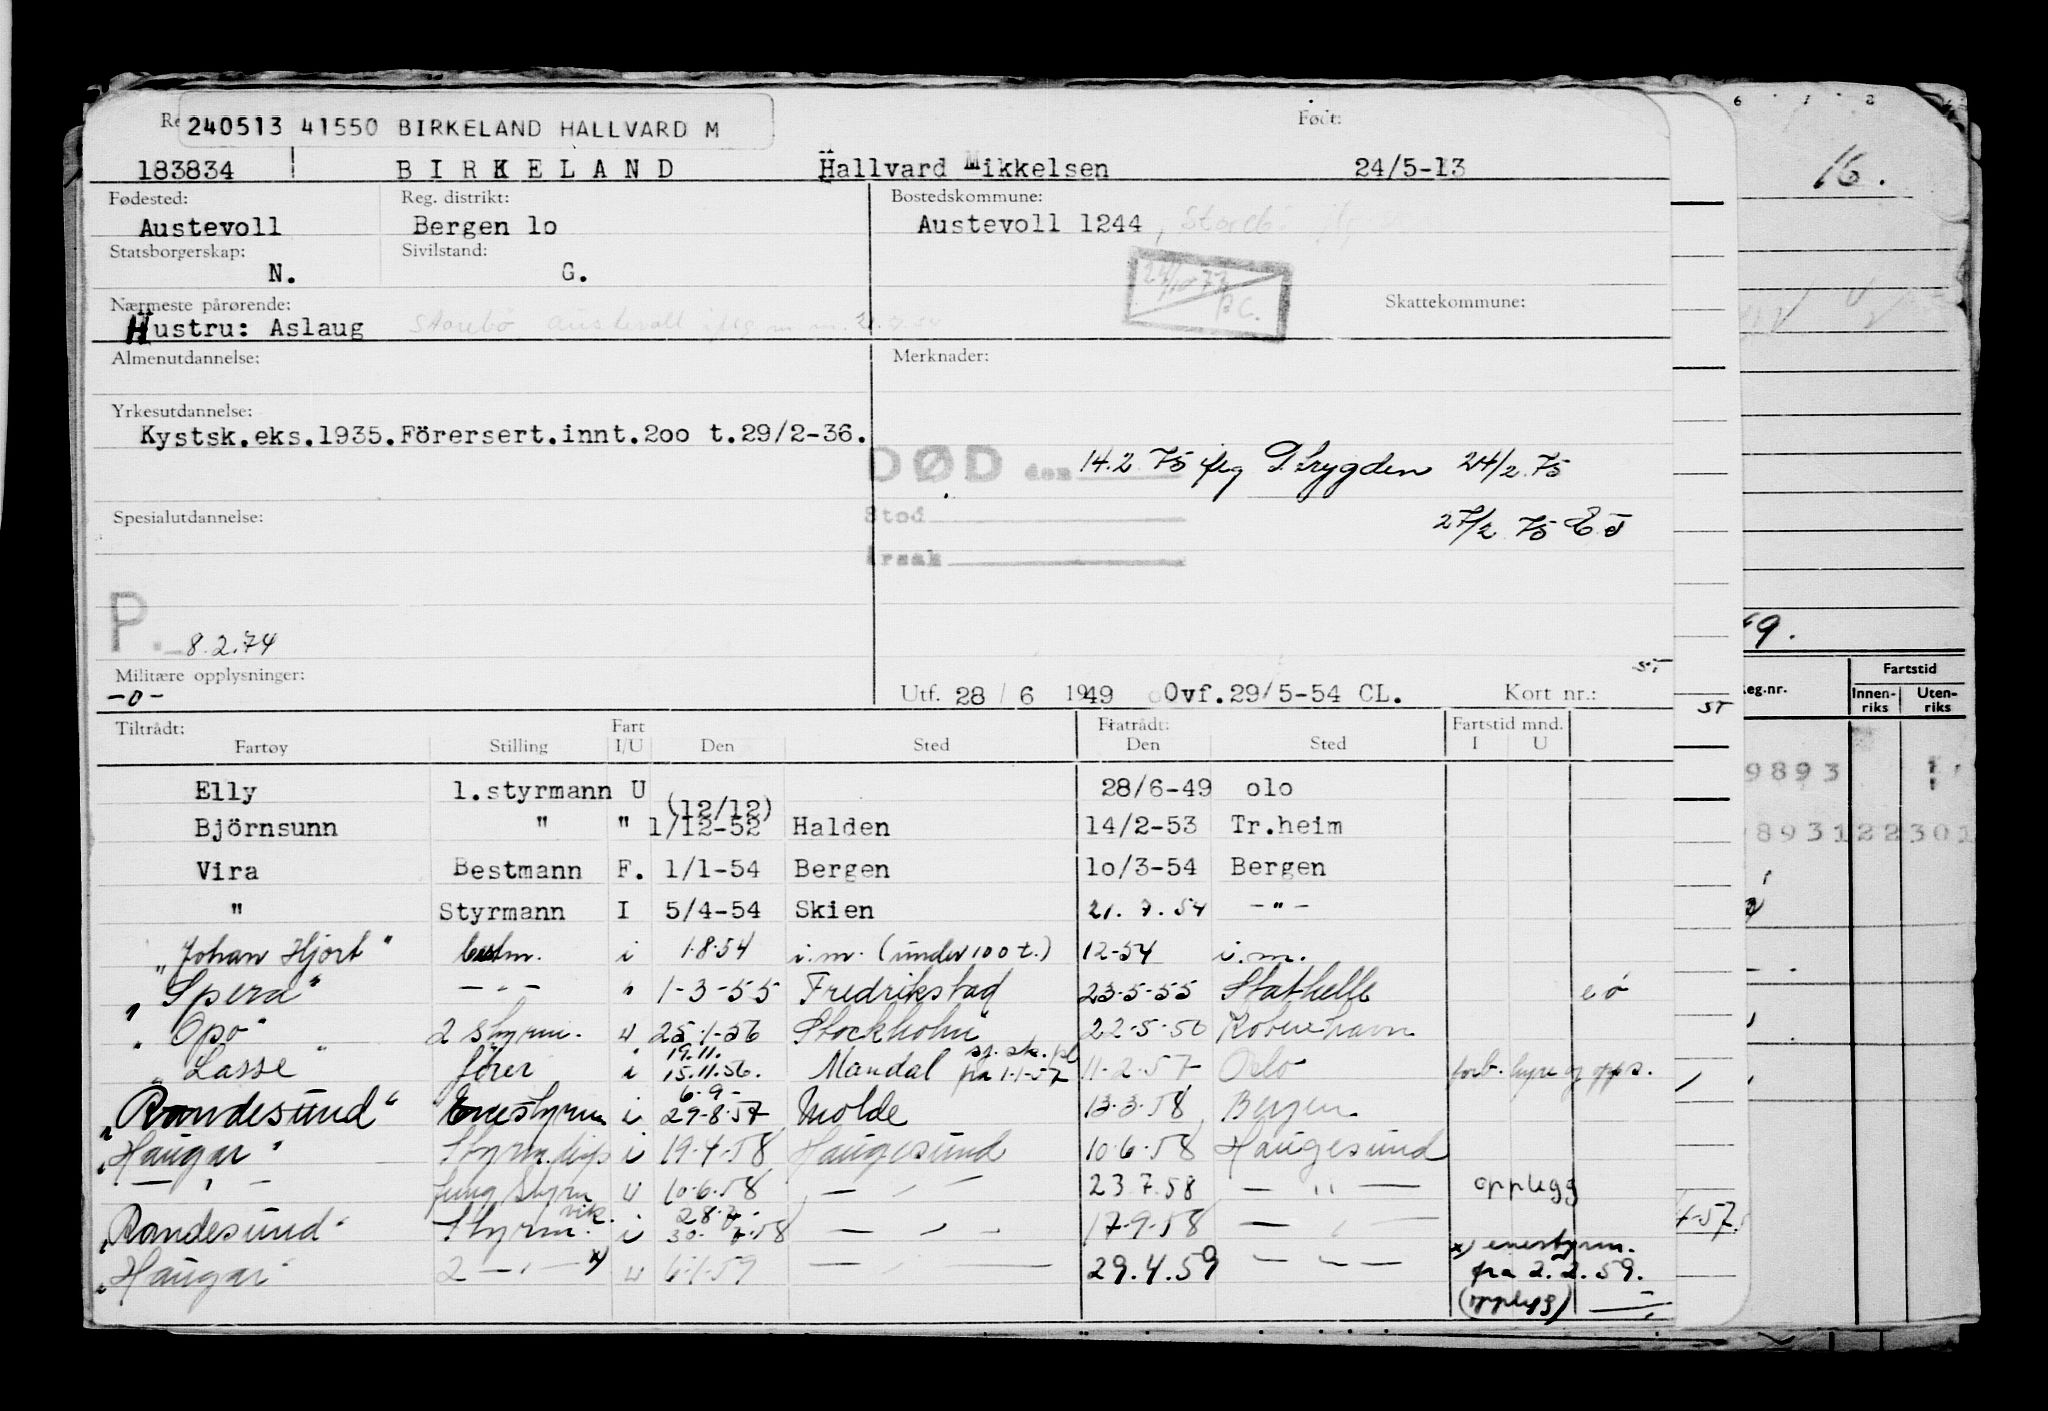 Født:
240513 41550 BIRKELAND HALLVARD M
183834 BIRKELAND Hallvard Mikkelsen 24/5-13
Fødested: Reg. distrikt: Bostedskommune:
Austevoll Bergen lo Austevoll 1244, Storebø
Statsborgerskap: Sivilstand:
N. G.
Nærmeste pårørende: Skattekommune:
Hustru: Aslaug Storebø Austevoll
Almenutdannelse: Merknader:
Yrkesutdannelse:
Kystsk.eks.1935.Förersert.innt.2oo t.29/2-36.
DØD den 14.2.75 iflg. Trygden 24/2.75
Spesialutdannelse: Sted 27/2.75 EJ
Årsak
P. 8.2.74
Militære opplysninger:
-0- Utf. 28 / 6 1949 Ovf.29/5-54 CL. Kort nr.:
Tiltrådt: Fart Fratrådt: Fartstid mnd.
Fartøy Stilling I/U Den Sted Den Sted I U
Elly 1.styrmann U 28/6-49 olo
(12/12)
Björnsunn " " 1/12-52 Halden 14/2-53 Tr.heim
Vira Bestmann F. 1/1-54 Bergen lo/3-54 Bergen
" Styrmann I 5/4-54 Skien 21.7.54 -"-
"Johan Hjort" bestm. i 1.8.54 i.m. (under 100 t.) 12-54 i.m.
"Spera" -"- " 1-3-55 Fredrikstad 23-5-55 Stathelle
"Opo" 2 styrm. u 25.1.56 Stockholm 22-5-56 København
19.11.
"Lasse" fører i 15.11.56. Mandal fra 1.1-57 11-2.57 Oslo forb. hyre og opps.
6.9-
"Randesund" Enestyrm i 29-8.57 Molde 13.3.58 Bergen
"Haugar" Styrm. disp i 19.4.58 Haugesund 10.6.58 Haugesund
- " - fung styrm u 10.6.58 - " - 23.7.58 - " - opplegg
vik. 28.7-
"Randesund" Styrm. i 30.7.58 - " - 17.9.58 - " -
"Haugar" 2 - " - x) u 6.1.59 - " - 29.4.59 - " - x) enestyrm.
fra 2.2.59.
(opplegg)
16.
49.
Reg.nr. Fartstid
Innenriks Utenriks
ST
ST
9893
89312230
4-57.